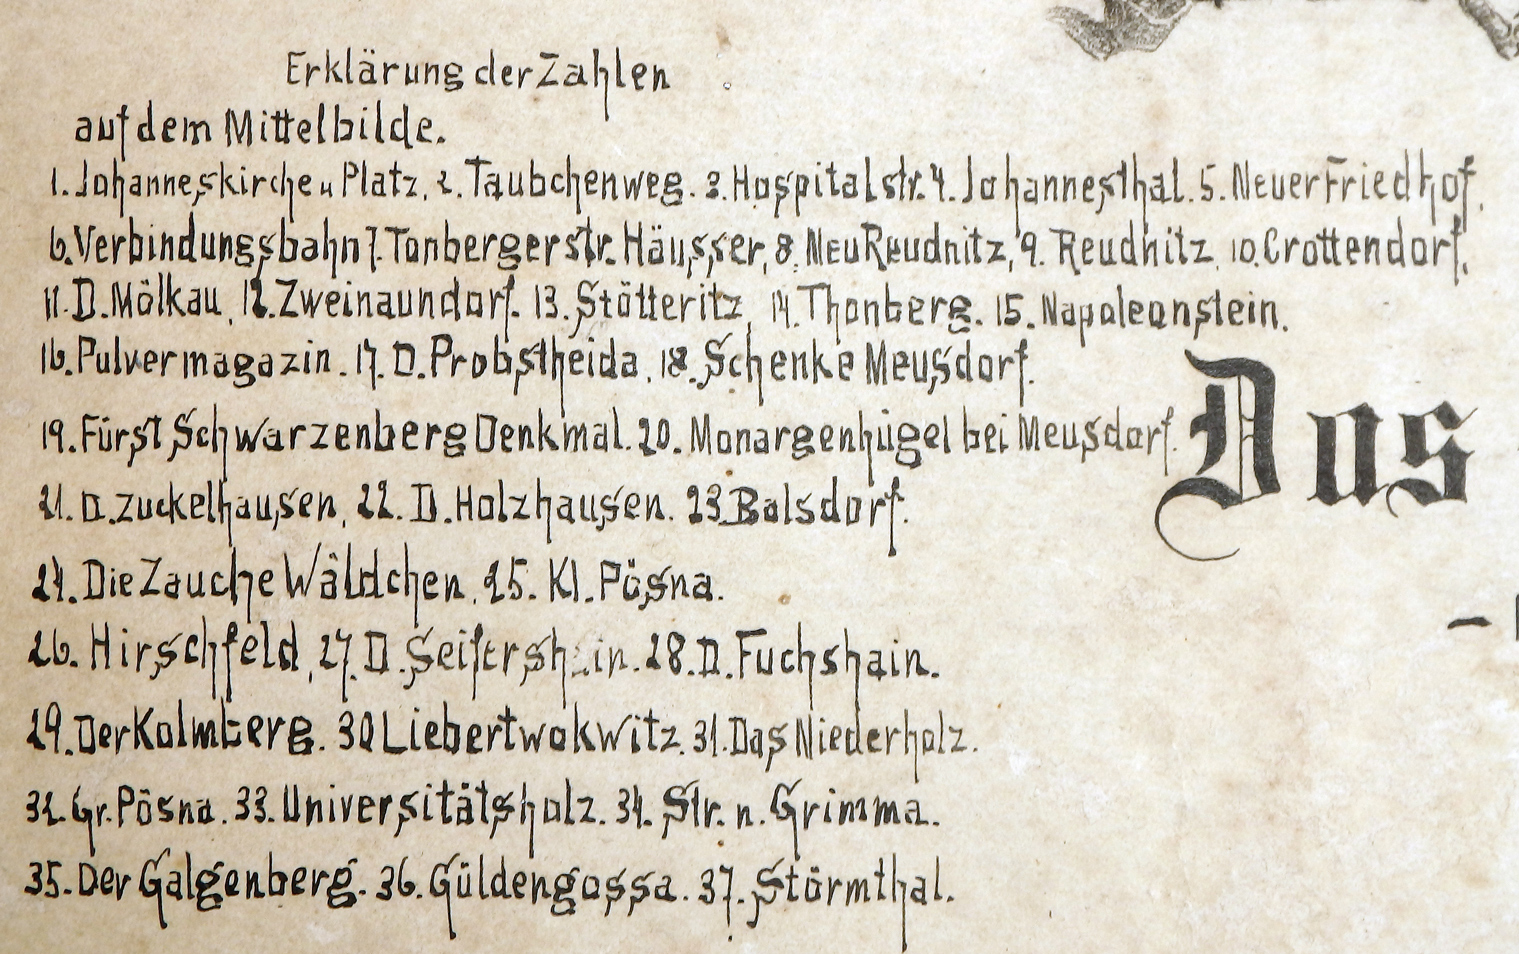 Erklärung der Zahlen
auf dem Mittelbilde.
1. Johanneskirche u Platz, 2. Taubchenweg. 3. Hospitalstr. 4. Johannesthal. 5. Neuer Friedhof.
6. Verbindungsbahn 7. Tonbergerstr. Häusser, 8. Neu Reudnitz, 9. Reudnitz, 10. Crottendorf,
11. D. Mölkau, 12. Zweinaundorf. 13. Stötteritz, 14. Thonberg. 15. Napoleonstein.
16. Pulvermagazin. 17. D. Probstheida, 18. Schenke Meusdorf.
19. Fürst Schwarzenberg Denkmal. 20. Monargenhügel bei Meusdorf.
21. D. Zuckelhausen, 22. D. Holzhausen. 23 Balsdorf.
24. Die Zauche Wäldchen, 25. Kl. Pösna.
26. Hirschfeld, 27. D. Seifershain. 28. D. Fuchshain.
29. Der Kolmberg. 30 Liebertwokwitz. 31. Das Niederholz.
32. Gr. Pösna. 33. Universitätsholz. 34. Str. n. Grimma.
35. Der Galgenberg. 36. Güldengossa. 37. Störmthal.
Das